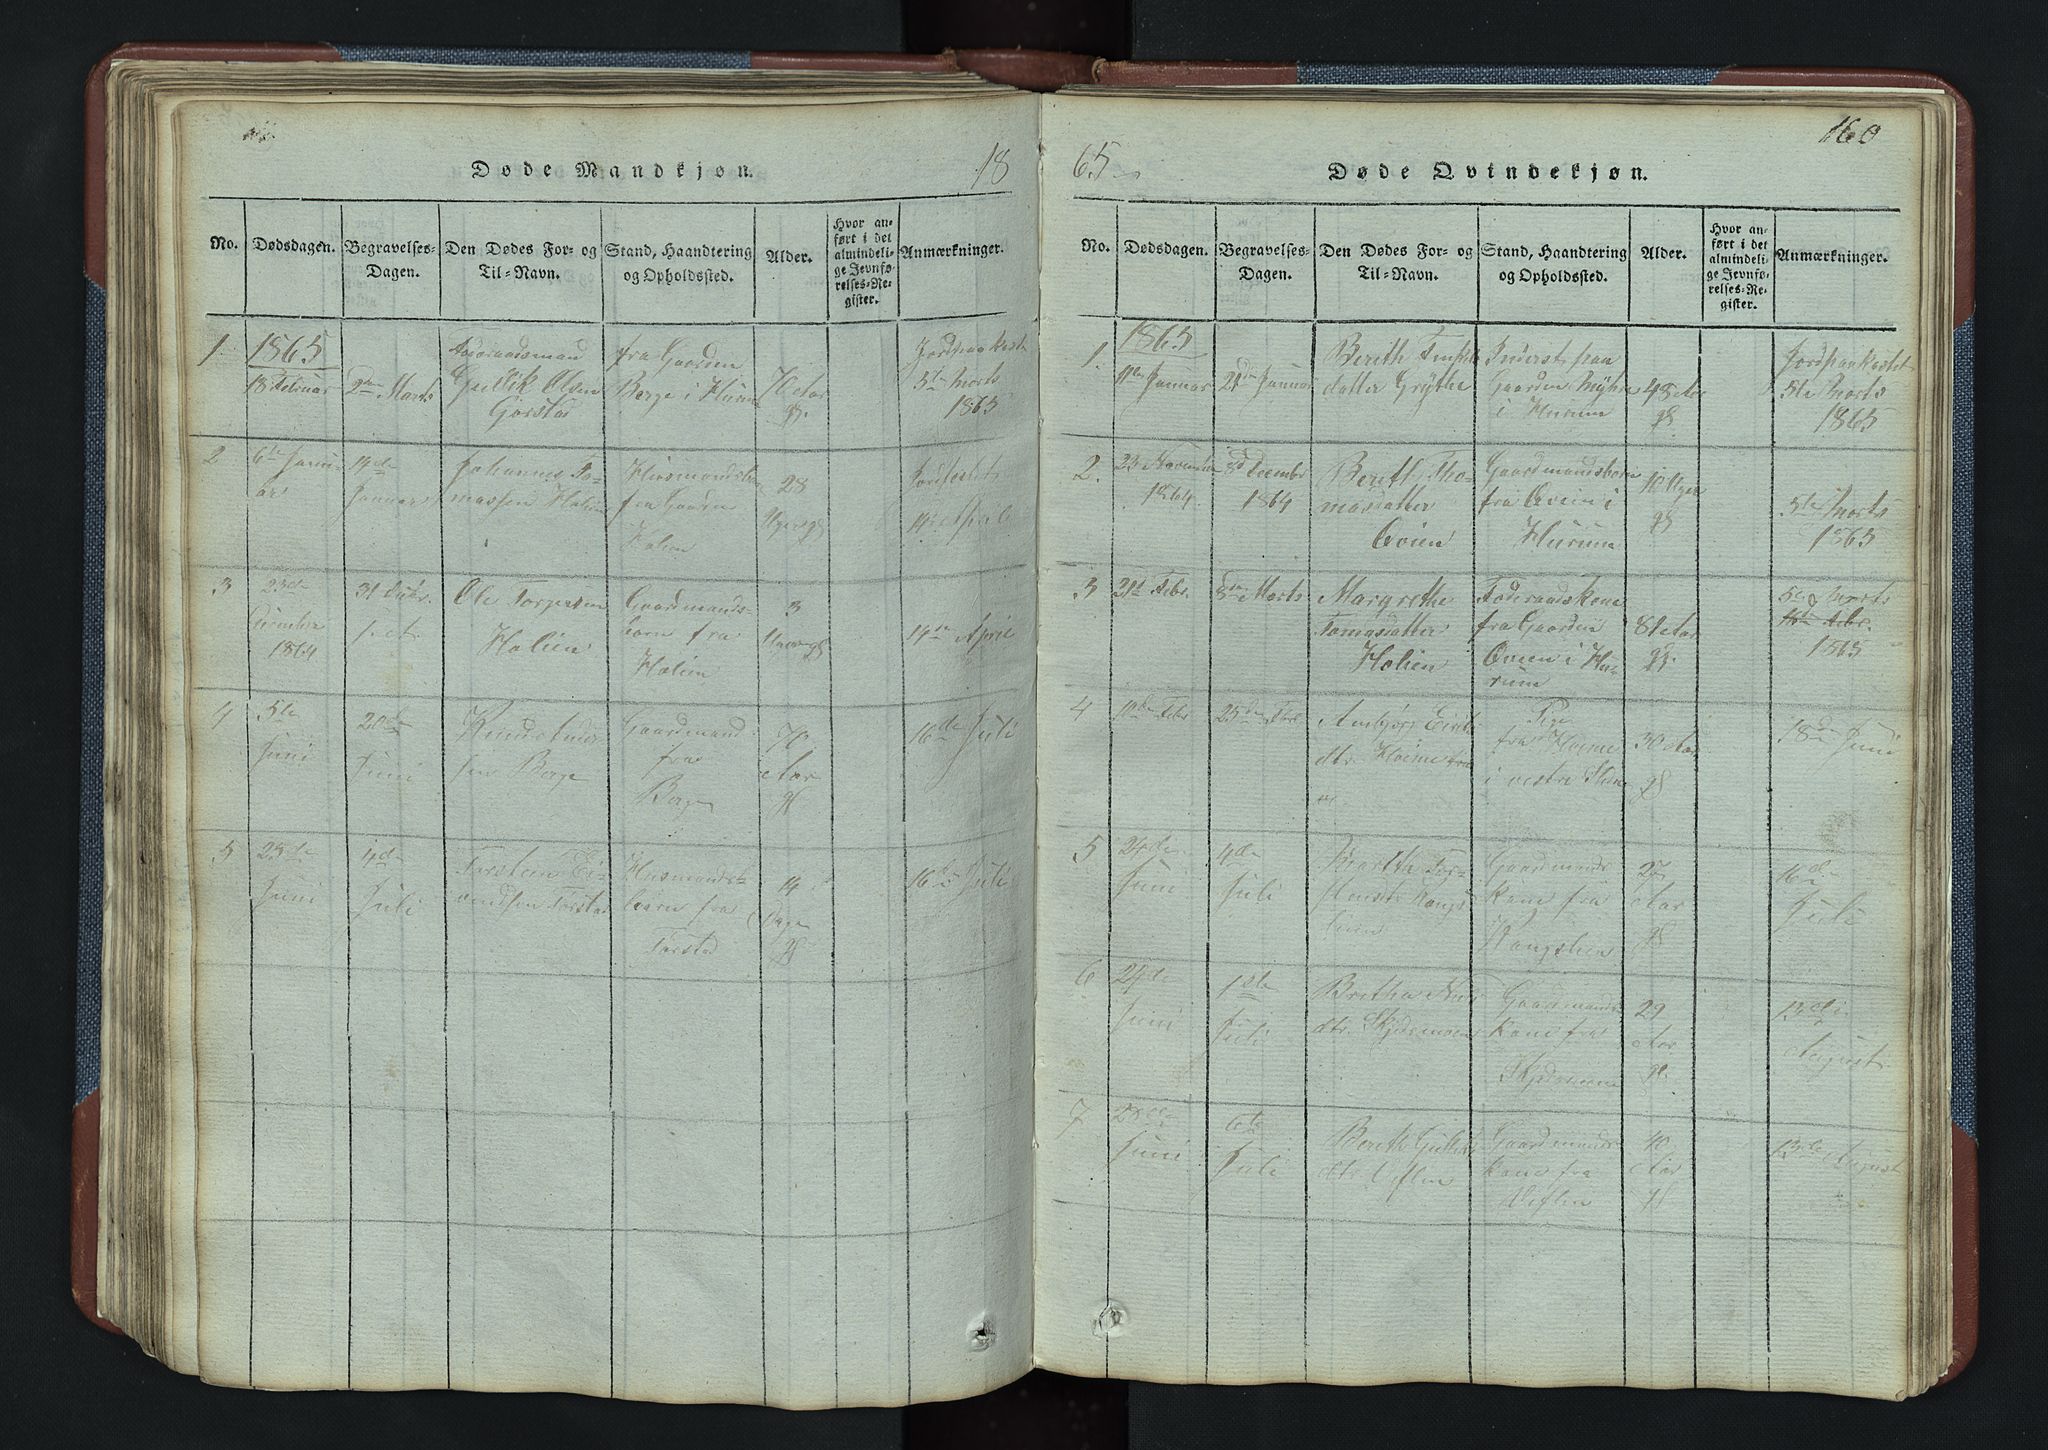 Døde Mandkjøn.
18
No.
Dødsdagen.
Begravelses-
Dagen.
Den Dødes For- og
Til-Navn.
Stand, Haandtering
og Opholdssted.
Alder.
Hvor an-
ført i det
almindeli-
ge Jevnfø-
relses-Re-
gister.
Anmærkninger.
1.
1865
18 Februar
2den Marts
Gullik Olsen
fra Gaarden
Berge i Hurum
70 Aar
Jordpaakast
5te Marts
1865
2
6te Janu-
ar
14de
Januar
Johannes To-
massen Holien
fra Gaarden
Holien
28
Uger
14de April
3
23de
December
1864
31 Debr.
Ole Torgersen
Holien
Gaardmands-
barn fra
Holien
3
14de April
4
5te
Juni
20de
Juni
Berge
Gaardmand
fra
Berge
70
Aar
16de Juli
5
25de
Juni
4de
Juli
Torstein Ei-
vindsen Torstad
Husmands-
barn fra
Torstad
14
Dage
16de Juli
160
65
Døde Qvindekjøn.
No.
Dødsdagen.
Begravelses-
Dagen.
Den Dødes For- og
Til-Navn.
Stand, Haandtering
og Opholdssted.
Alder.
Hvor an-
ført i det
almindeli-
ge Jevnfø-
relses-Re-
gister.
Anmærkninger.
1.
1865
11te Januar
21de Januar
Berith
datter Grythe
Inderst paa
Gaarden Myhre
i Hurum
48 Aar
Jordpaakastet
5te Marts
1865
2.
23 November
1864
3d December
1864
Berith Tho-
masdatter
Øvien
Gaardmandsbarn
fra Øvien i
Hurum
10 Uger
5te Marts
1865
3
21d Febr.
Marts
Margrethe
Tomasdatter
Holien
Føderaadskone
fra Gaarden
Øvien i Hu-
rum
81 Aar
5te Marts
1865
4
11de Febr
25de Febr
Ambjør
dtr. Høime fra
Pige
fra Høime
i vestre Slidre
30 Aar
18de Juni
5
24de
Juni
4de
Juli
Gaardmands
kone fra
27
Aar
16de
Juli
6
24de
Juni
1ste
Juli
Britha
dtr.
Gaardmands
kone fra
29
Aar
13de
August
7
28de
Juni
6te
Juli
Berith Gulliks
dtr.
Gaardmands
kone fra
40
Aar
13de August